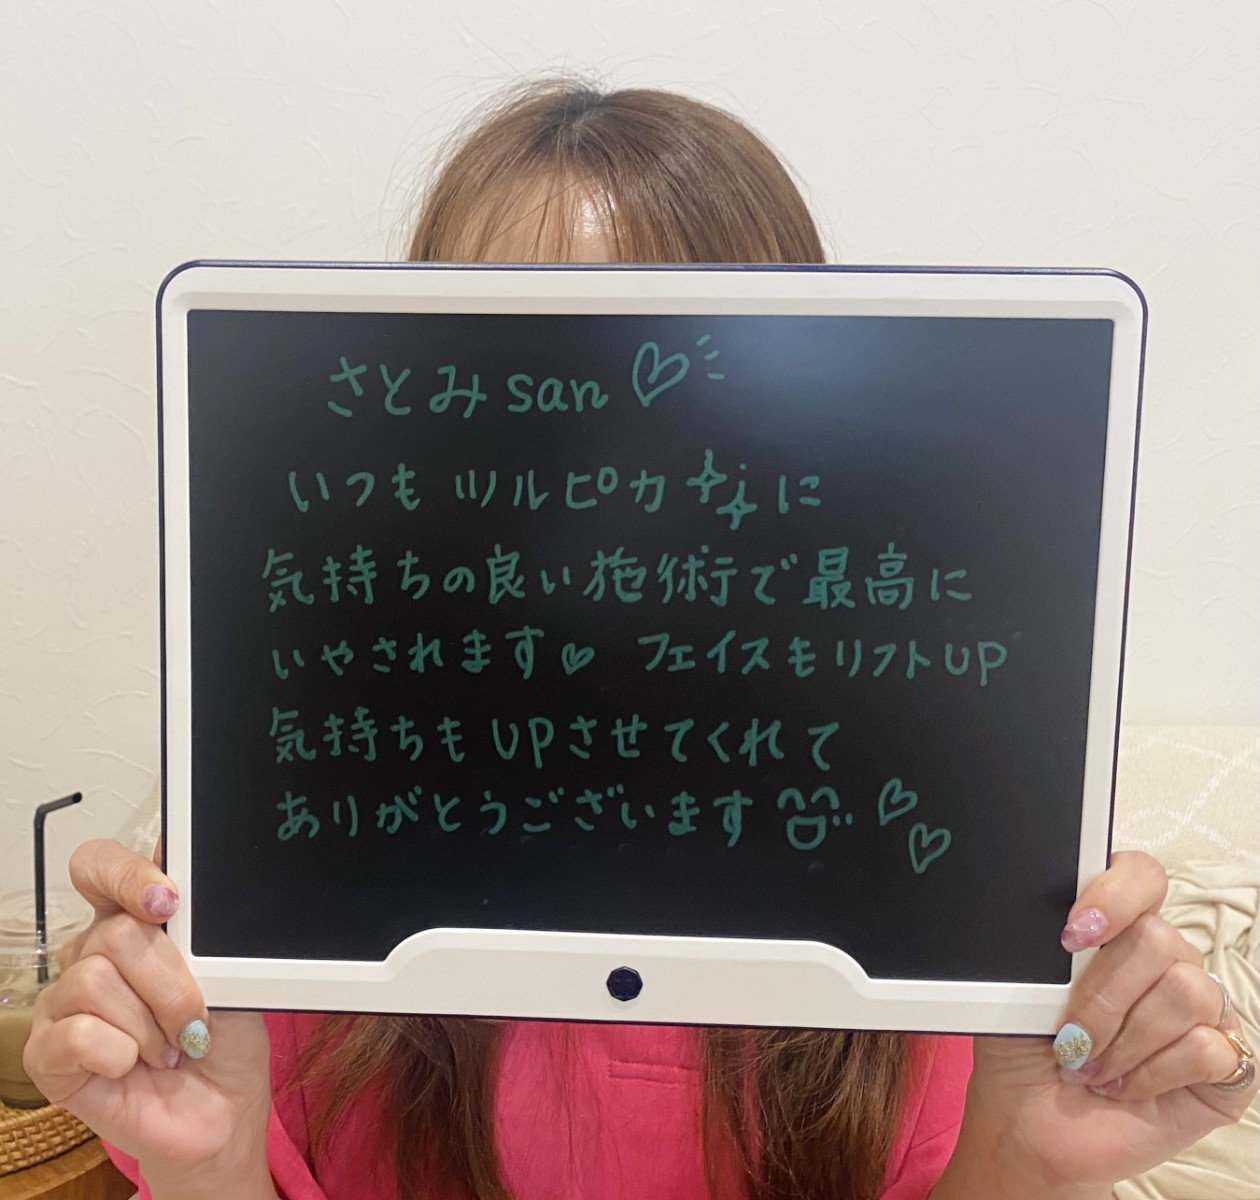 さとみsan♡
いつもツルピカ✨に
気持ちの良い施術で最高に
いやされます♡ フェイスもリフトUP
気持ちもUPさせてくれて
ありがとうございます